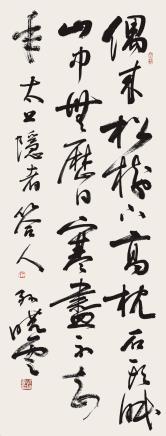 偶来松树下高枕石头眠
山中无历日寒尽不知
年 太上隐者答人 孙晓云